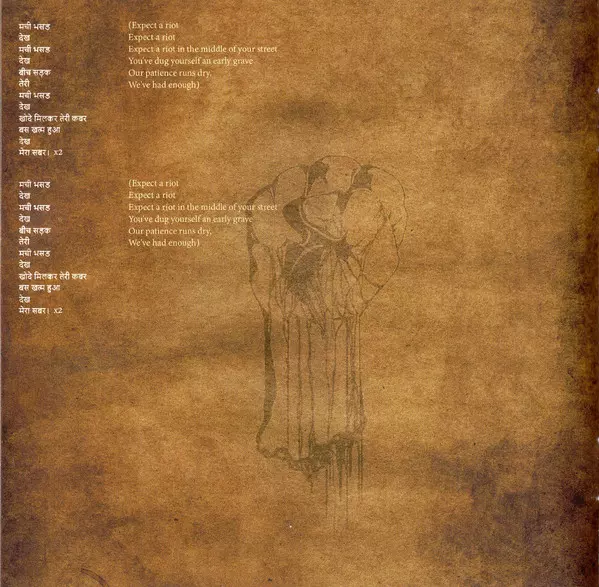 मची भसड
देख
मची भसड
देख
बीच सड़क
तेरी
मची भसड
देख
खोदे मिलकर तेरी कबर
बस खत्म हुआ
देख
मेरा सबर। x2
(Expect a riot
Expect a riot
Expect a riot in the middle of your street
You've dug yourself an early grave
Our patience runs dry,
We've had enough)
मची भसड
देख
मची भसड
देख
बीच सड़क
तेरी
मची भसड
देख
खोदे मिलकर तेरी कबर
बस खत्म हुआ
देख
मेरा सबर। x2
(Expect a riot
Expect a riot
Expect a riot in the middle of your street
You've dug yourself an early grave
Our patience runs dry,
We've had enough)